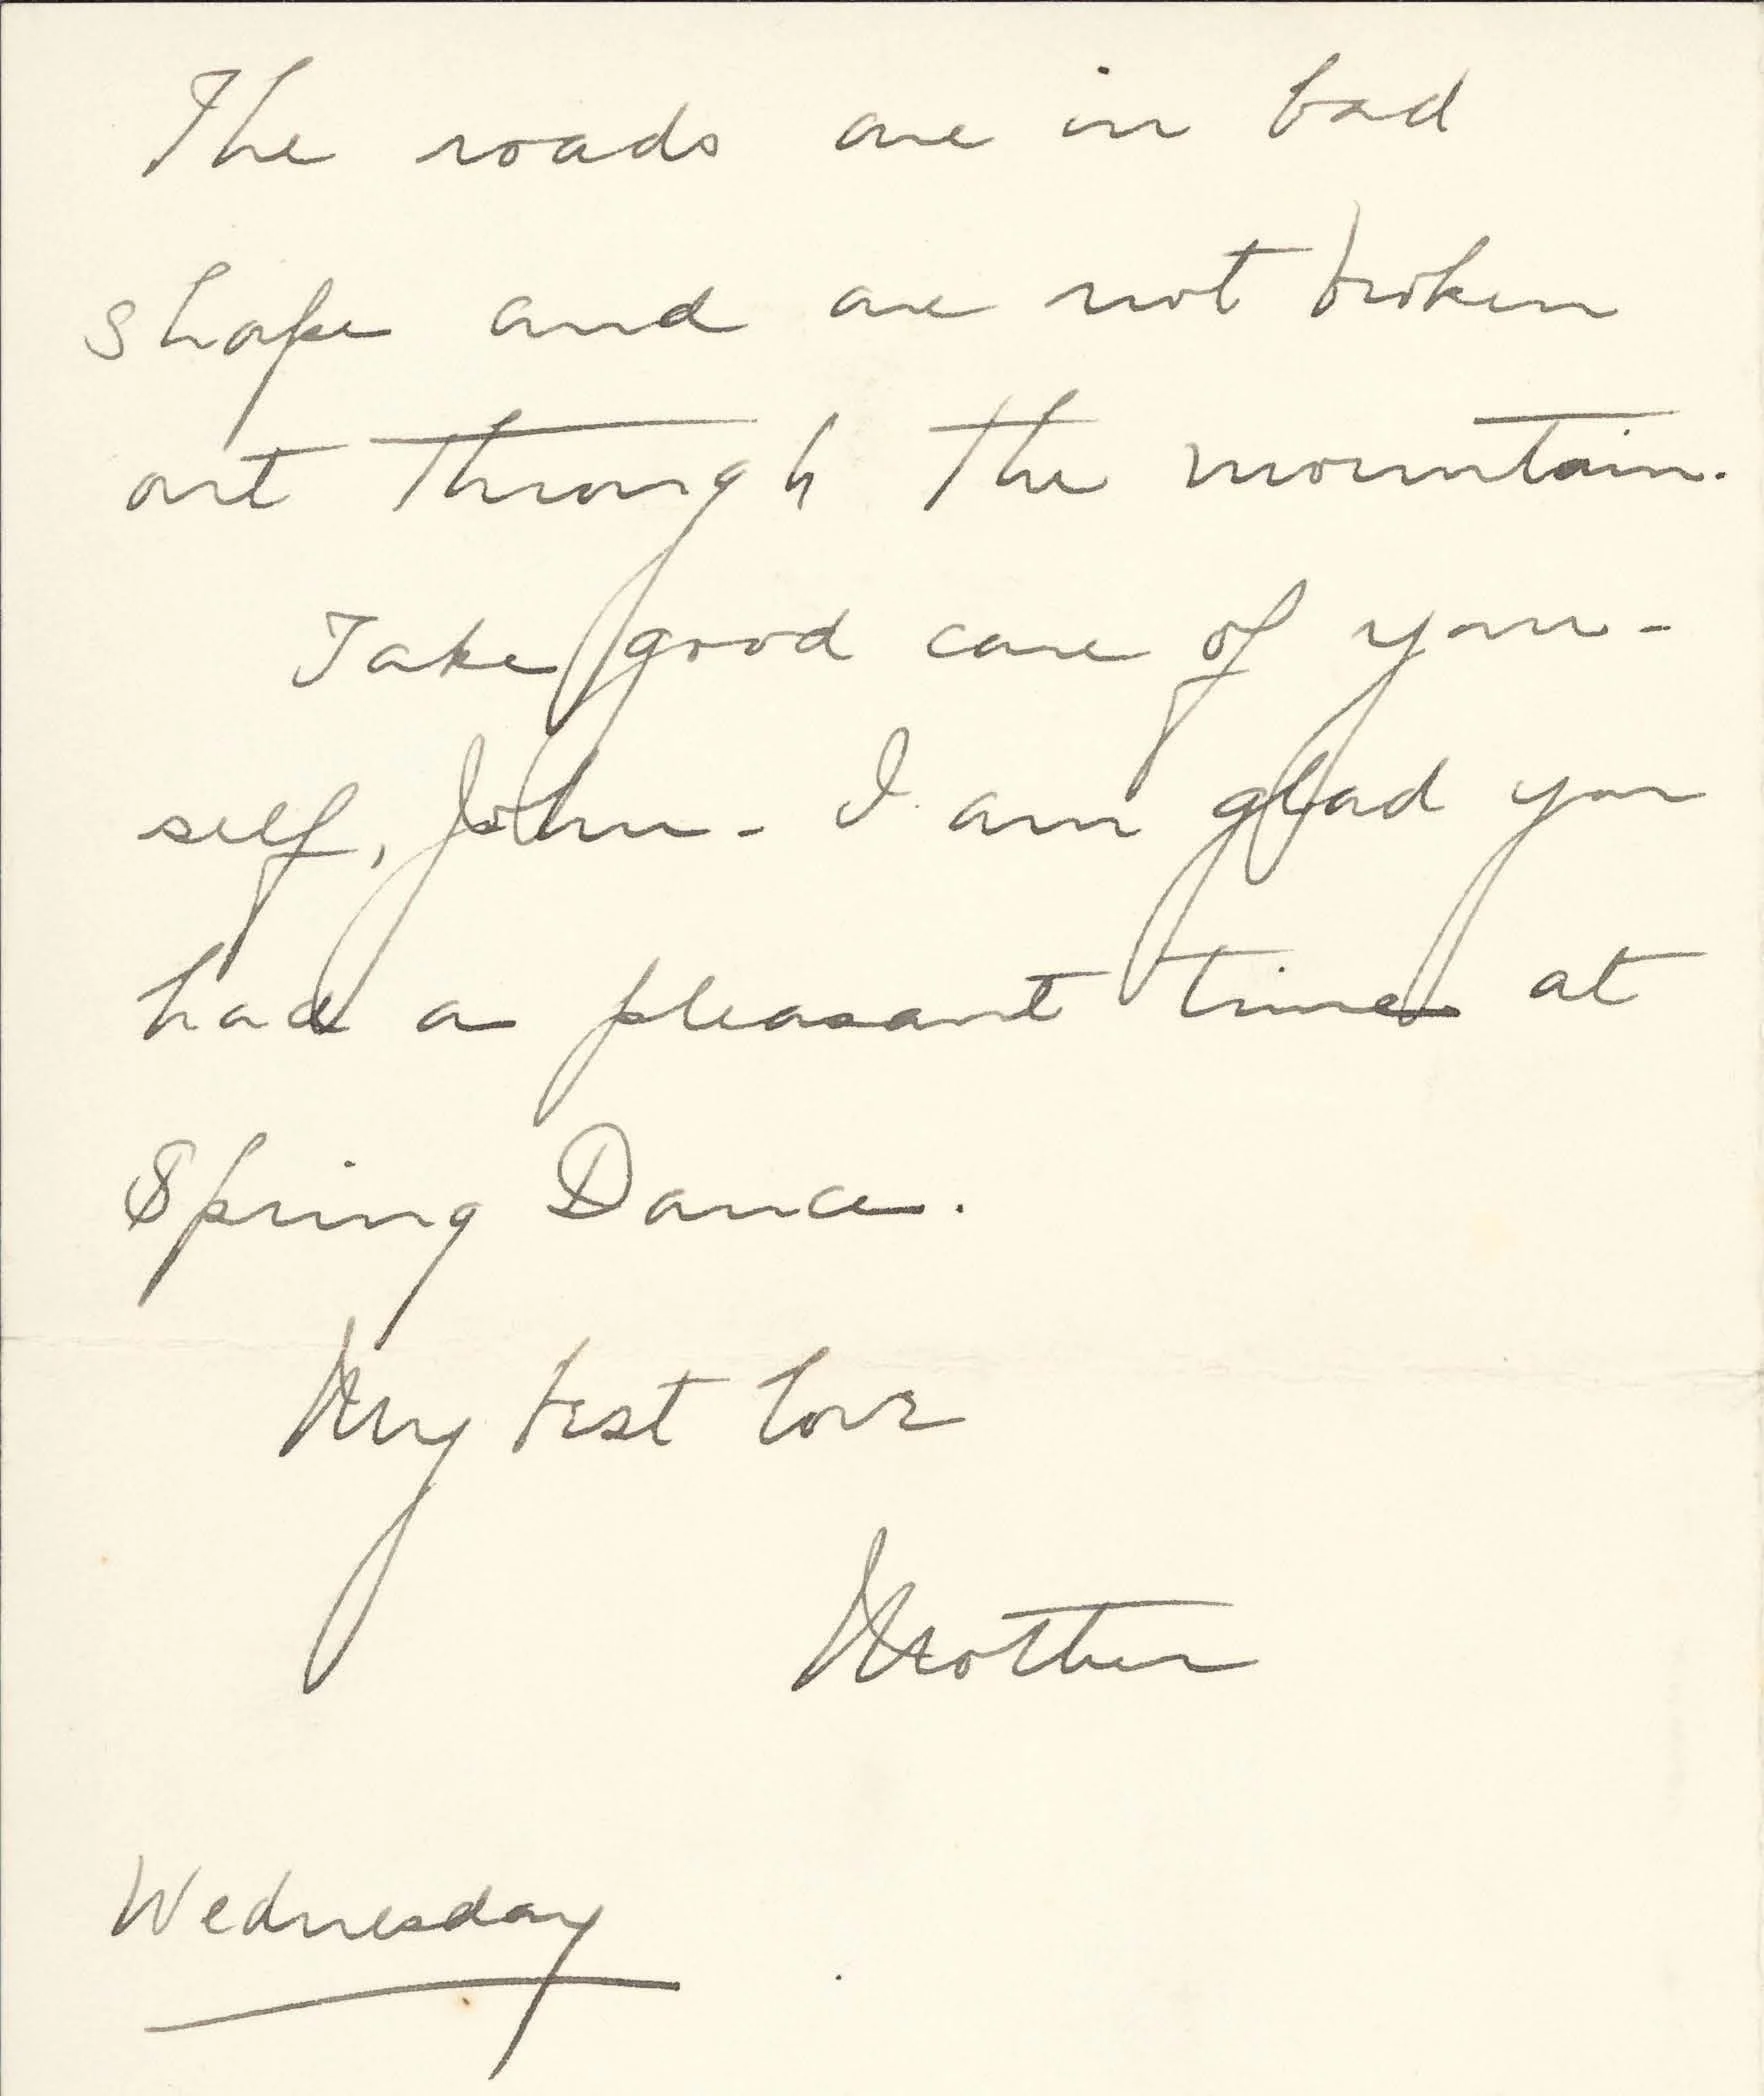 The roads are in bad
shape and are not broken
out through the mountain.
Take good care of your-
self, John - I am glad you
had a pleasant time at
Spring Dance.
My best love
Mother
Wednesday